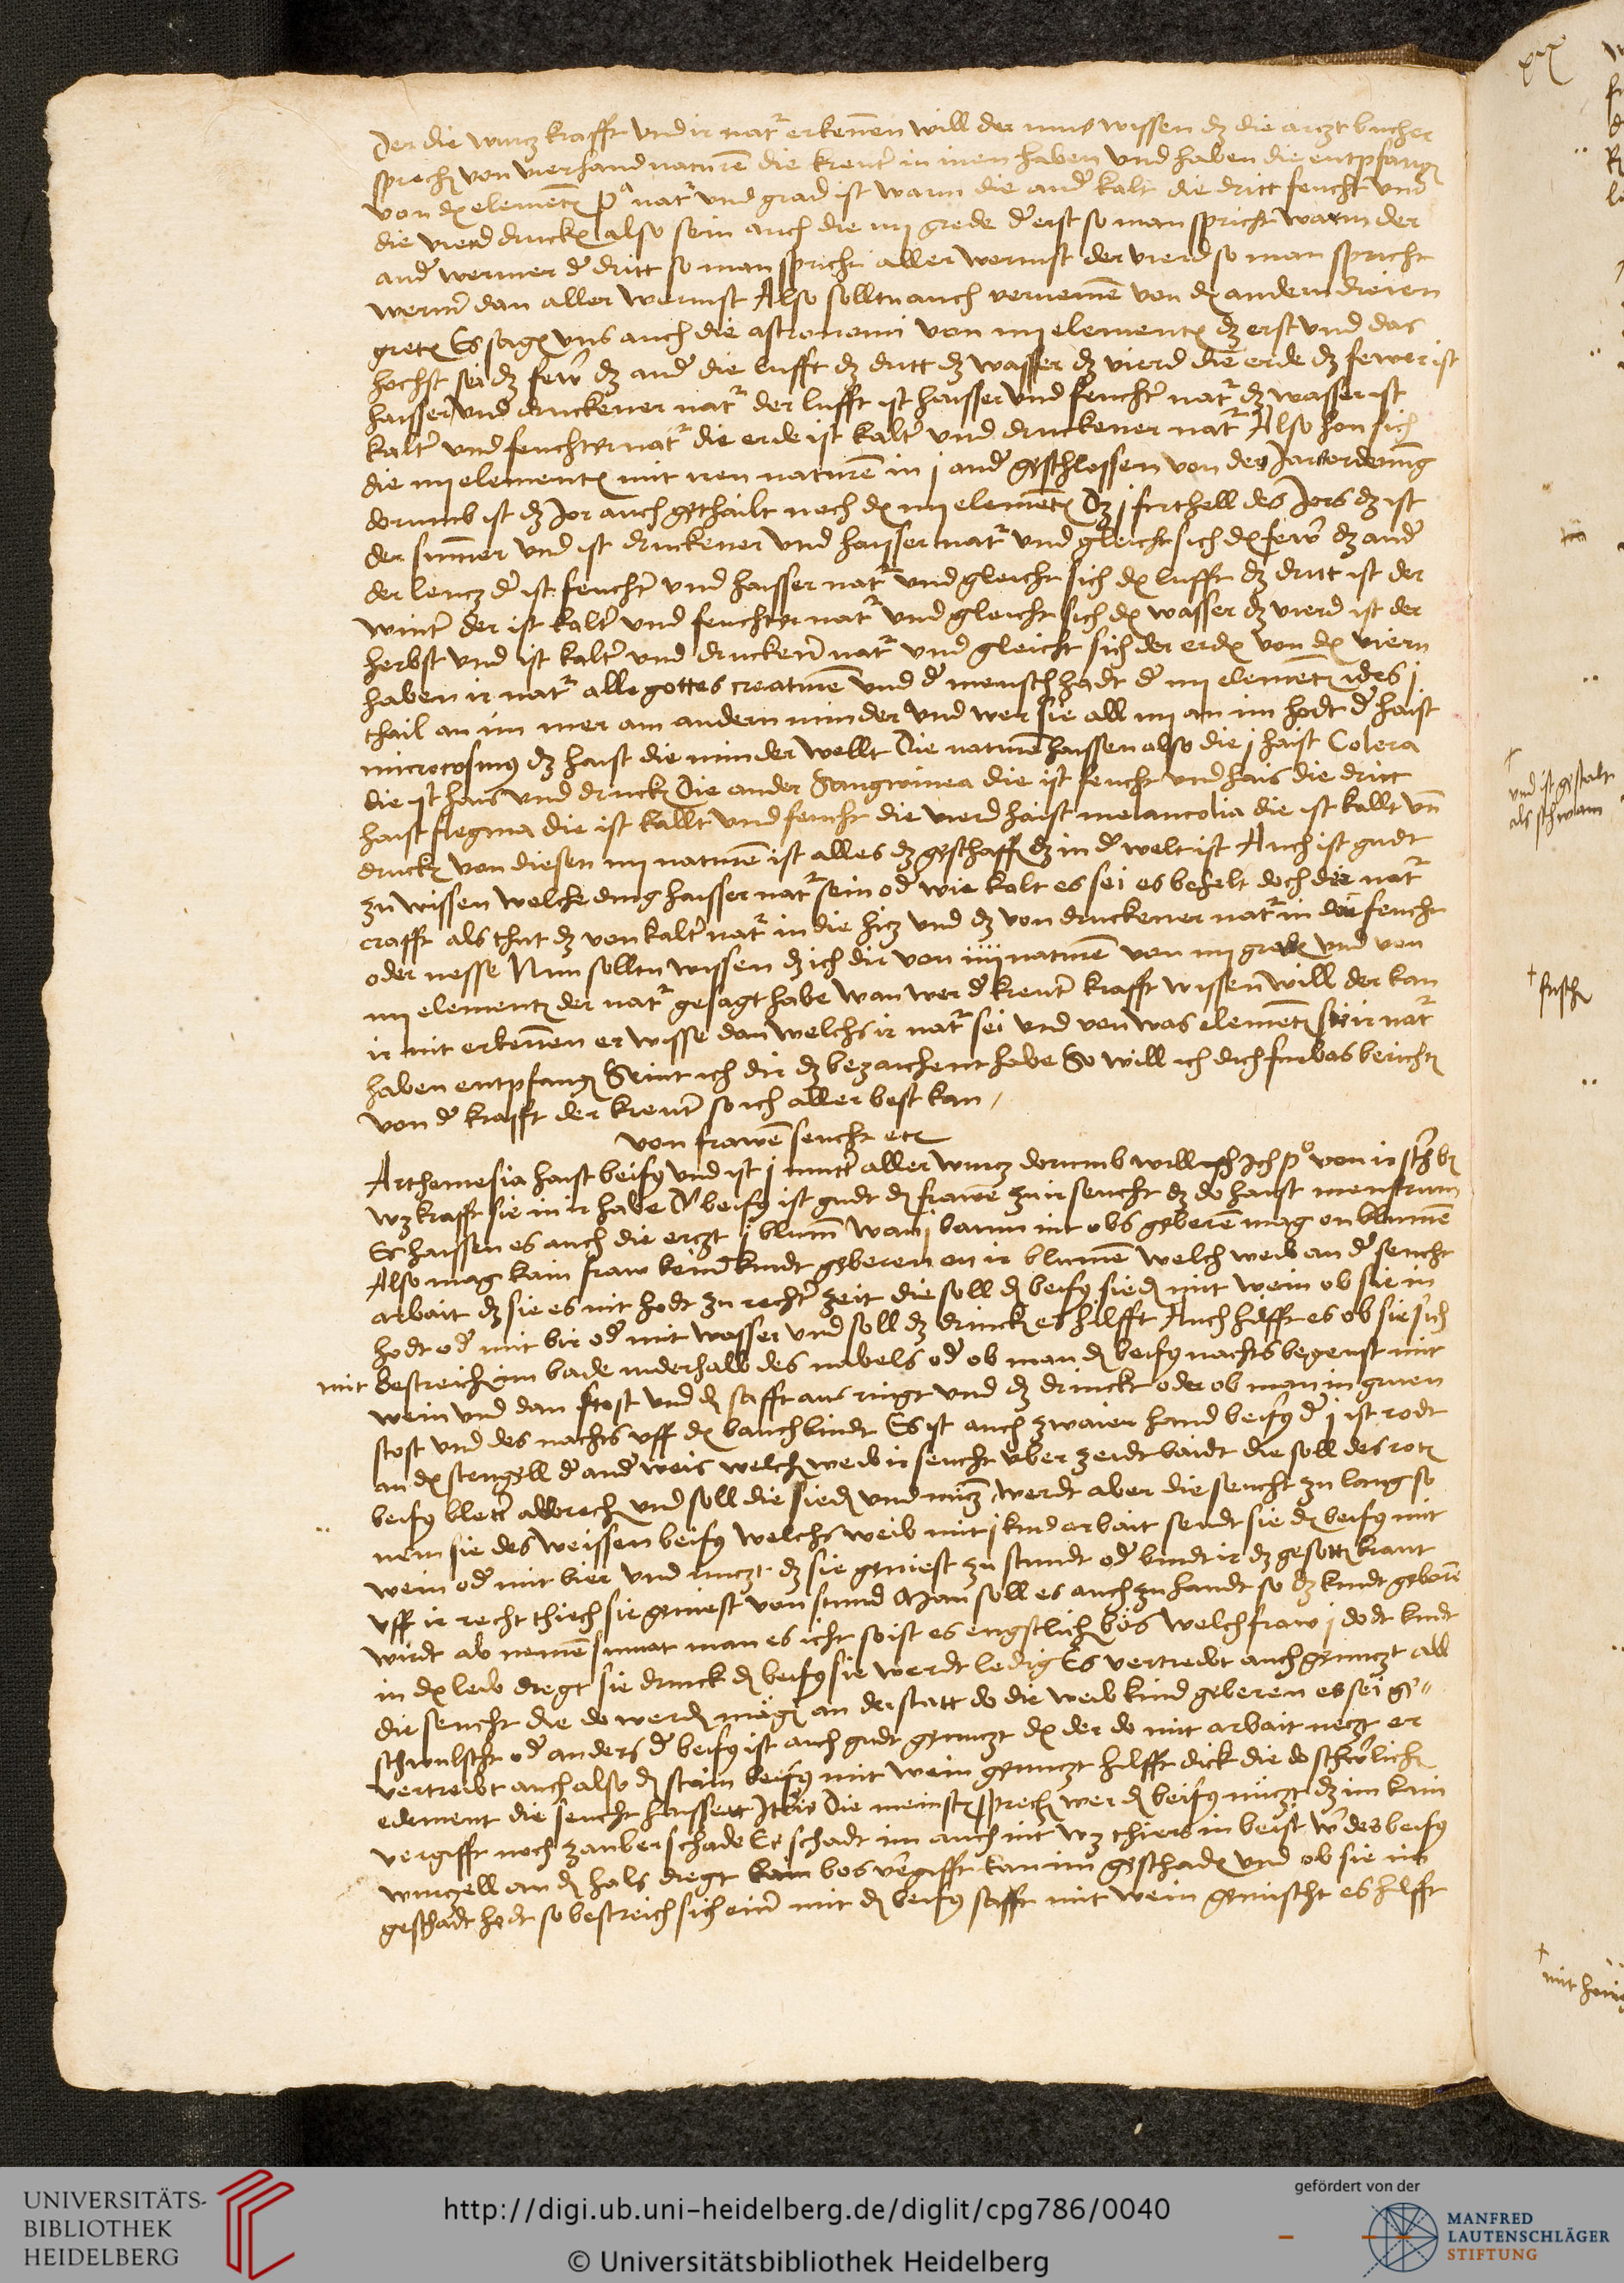 Der die wurcz krafft vnd ir nat' erkennen will der mus wissen dz die arczt bucher
sprechen von vierhand naturen die kreuter in inen haben vnd haben die entpfangen
von den elementen p^a nat' vnd grad ist warm die ander kalt die dritt feucht vnd
die vierd drucken also sein auch die iiij grede der erst so man spricht warm der
ander wermer der dritt so man spricht aller wermst der vierd so man spricht
wermer dan aller wermst Also solltu auch vernemen von den andern dreien
greten Es sagen vns auch die astronomi von iiij elementen dz erst vnd das
hochst sei dz fewer dz ander die lufft dz dritt dz wasser dz vierd die erde dz fewer ist
haisser vnd druckener nat' der lufft ist haisser vnd feuchter nat' dz wasser ist
kalter vnd feuchter nat' die erde ist kalter vnd druckener nat' Also hon sich
die iiij elementen mit iren naturen in j ander geschlossen von des jars ordenung
dorumb ist dz Jor auch gethailt noch den iiij elementen Dz j furthell des Jors dz ist
der summer vnd ist druckener vnd haisser nat' vnd gleicht sich dem fewer dz ander
der lencz der ist feuchter vnd haisser nat' vnd gleicht sich dem lufft dz dritt ist der
winter der ist kalter vnd feuchter nat' vnd gleicht sich dem wasser dz vierd ist der
herbst vnd ist kalter vnd druckener nat' vnd gleicht sich der erden von den viern
haben ir nat' alle gottes creaturen vnd der mensch hadt der iiij elementen ides j
thail an im mer am andern minder vnd wer sie all iiij an im hodt der haist
microcosmus dz haist die minder wellt Die naturen haissen also die j haist Colera
die ist hais vnd drucken Die ander Sangwinea die ist feucht vnd hais die dritt
haist flegma die ist kallt vnd feucht die vierd haist melancolia die ist kallt vnd
drucken von diesen iiij naturen ist alles dz geschaffen dz in der welt ist Auch ist gudt
zu wissen welche ding haisser nat' sein oder wie kalt es sei es behelt doch die nat'
crafft als thut dz von kalter nat' in die hicz vnd dz von druckener nat' in die feucht
oder nesse Nun solltu wissen dz ich dir von iiij naturen von iiij greden vnd von
iiij elementen der nat' gesagt habe wan wer der kreuter krafft wissen will der kan
ir nit erkennen er wisse dan welchs ir nat' sei vnd von was elementen sie ir nat'
haben entpfangen Seint ich dir dz bezaichent habe So will ich dich furbas berichten
von der krafft der kreuter so ich aller best kan /
von frawen seucht etc
Arthemesia haist beifus vnd ist j muter aller wurcz dorumb will ich p^o von ir schreiben
wz krafft sie in ir habe Der beifus ist gudt den frawen zu ir seucht dz do haist menstruum
Es haissen es auch die erczt j blumen wan j baum nit obs geberen mag on blumen
Also mag kain fraw kein kindt geberen on ir blumen welch weib an der seucht
arbait dz sie es nit hodt zu rechter zeit die soll den beifus sieden mit wein ob sie in
hodt oder mit bir oder mit wasser vnd soll dz drincken es hilfft Auch hilfft es ob sie sich
mit bestreichen im bade niderhalb des nabels oder ob man den beifus nachts begeust mit
wein vnd dan stost vnd den safft aus ringt vnd dz drinckt oder ob man in gruen
stost vnd des nachts vff den bauch bindt Es ist auch zwaier hand beifus der j ist rodt
an dem stengell der ander weis welchem weib ir seucht vber zeidt baidt die soll des roten
beifus bletter abbrechen vnd soll die sieden vnd nuczen werdt aber die seucht zu lang so
nem sie des weissen beifus welchs weib mit j kind arbait seudt sie den beifus mit
wein oder mit bier vnd nuczt dz sie geniest zu stundt oder bindt ir dz gesotten kraut
vff ir recht thiech sie geniest von stund Man soll es auch zu handt so dz kindt geboren
wirdt ab nemen sumet man es icht so ist es engstlich bos welch fraw j dodt kindt
in dem leib dregt sie drinck den beifus sie werdt ledig Es vertreibt auch genuczt all
die seucht die do werden mögen an der statt do die weib kind geberen es sei ge-
schwulscht oder anders der beifus ist auch gudt genuczt dem der do mit arbait neczt er
vertreibt auch also den stain beifus mit wein genuczt hilfft dick die do schwerlich
die seucht haissett Die meinster sprechen wer den beifus nuczt dz im kain
vergifft noch zauber schade Es schadt im auch nit wz thiers in beist wer des beifus
wurczell an den hals dregt kain bos vergifft kan im geschaden vnd ob sie im
geschadt hodt so bestreich sich einer mit dem beifus safft mit wein gemischt es hilfft
vnd ist gestalt
als schwam
frisch
mit honi
UNIVERSITÄTS-
BIBLIOTHEK
HEIDELBERG
http://digi.ub.uni-heidelberg.de/diglit/cpg786/0040
© Universitätsbibliothek Heidelberg
gefördert von der
MANFRED
LAUTENSCHLÄGER
STIFTUNG